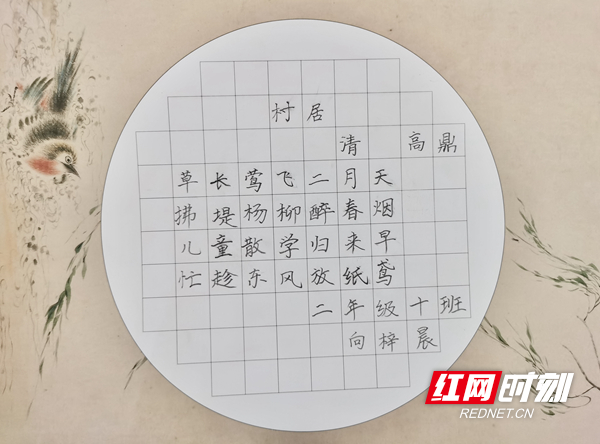 村居
清 高鼎
草长莺飞二月天
拂堤杨柳醉春烟
儿童散学归来早
忙趁东风放纸鸢
二年级十班
向梓晨
红网时刻
REDNET.CN